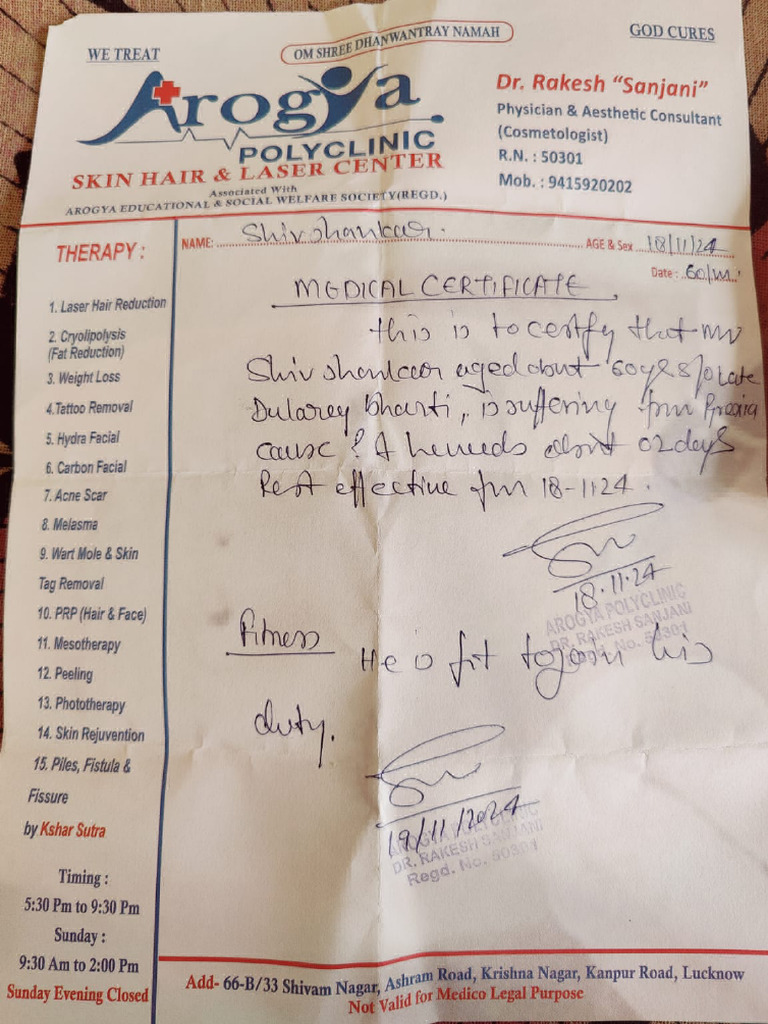 WE TREAT
OM SHREE DHANWANTRAY NAMAH
GOD CURES
Arogya
POLYCLINIC
SKIN HAIR & LASER CENTER
Associated With
AROGYA EDUCATIONAL & SOCIAL WELFARE SOCIETY(REGD.)
Dr. Rakesh "Sanjani"
Physician & Aesthetic Consultant
(Cosmetologist)
R.N. : 50301
Mob. : 9415920202
NAME: Shivshankar. AGE & Sex 18/11/24
Date : 60/M
THERAPY :
1. Laser Hair Reduction
2. Cryolipolysis
(Fat Reduction)
3. Weight Loss
4.Tattoo Removal
5. Hydra Facial
6. Carbon Facial
7. Acne Scar
8. Melasma
9. Wart Mole & Skin
Tag Removal
10. PRP (Hair & Face)
11. Mesotherapy
12. Peeling
13. Phototherapy
14. Skin Rejuvention
15. Piles, Fistula &
Fissure
by Kshar Sutra
Timing :
5:30 Pm to 9:30 Pm
Sunday :
9:30 Am to 2:00 Pm
Sunday Evening Closed
MEDICAL CERTIFICATE
this is to certify that mr
Shivshankar aged about 60 yrs s/o Late
Dularey Bharti, is suffering from
cause ? & he needs about 02 days
Rest effective from 18-11-24.
18.11.24
AROGYA POLYCLINIC
DR. RAKESH SANJANI
Regd. No. 50301
Fitness
He is fit to join his
duty.
19/11/2024
AROGYA POLYCLINIC
DR. RAKESH SANJANI
Regd. No. 50301
Add- 66-B/33 Shivam Nagar, Ashram Road, Krishna Nagar, Kanpur Road, Lucknow
Not Valid for Medico Legal Purpose